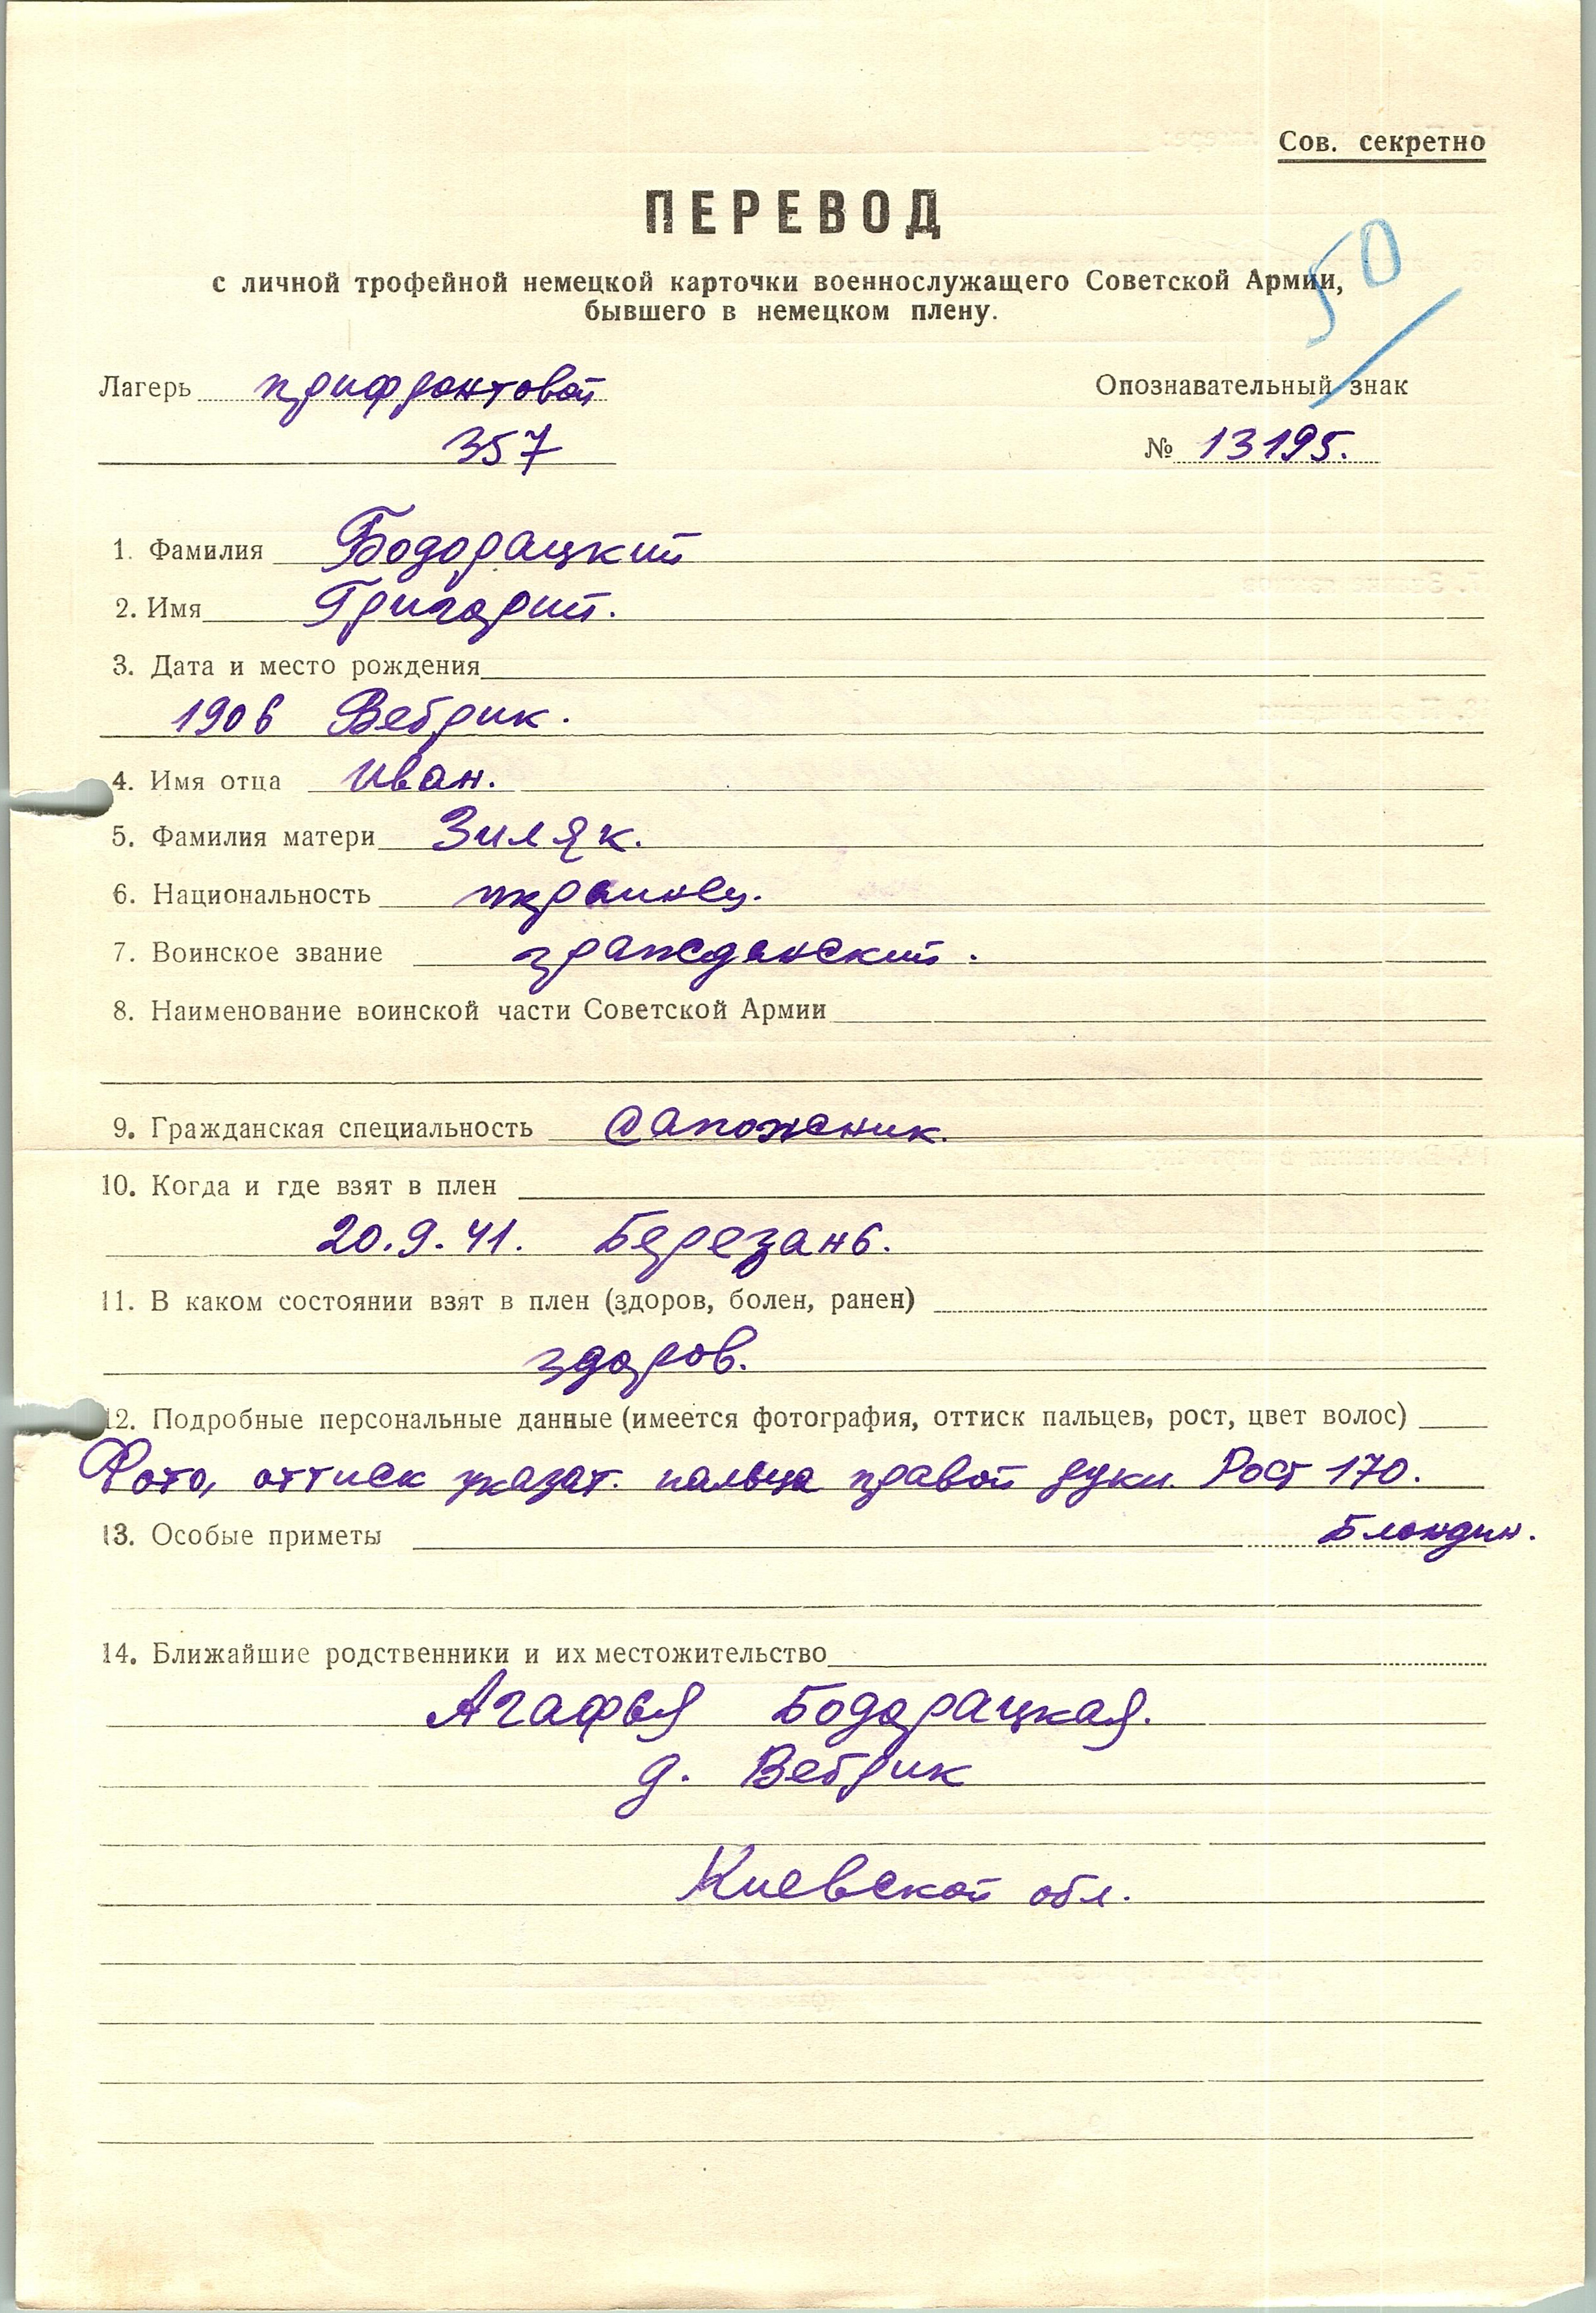 Сов. секретно
ПЕРЕВОД
50
с личной трофейной немецкой карточки военнослужащего Советской Армии,
бывшего в немецком плену.
Лагерь прифронтовой
Опознавательный знак
357
№ 13195.
1. Фамилия Бодорацкий
2. Имя Григорий.
3. Дата и место рождения
1906 Вебрик.
4. Имя отца Иван.
5. Фамилия матери Зиляк.
6. Национальность украинец.
7. Воинское звание гражданский.
8. Наименование воинской части Советской Армии
9. Гражданская специальность сапожник.
10. Когда и где взят в плен
20.9.41. Березань.
11. В каком состоянии взят в плен (здоров, болен, ранен)
здоров.
12. Подробные персональные данные (имеется фотография, оттиск пальцев, рост, цвет волос)
Фото, оттиск указат. пальца правой руки. Рост 170.
Блондин.
13. Особые приметы
14. Ближайшие родственники и их местожительство
Агафья Бодорацкая.
д. Вебрик
Киевской обл.